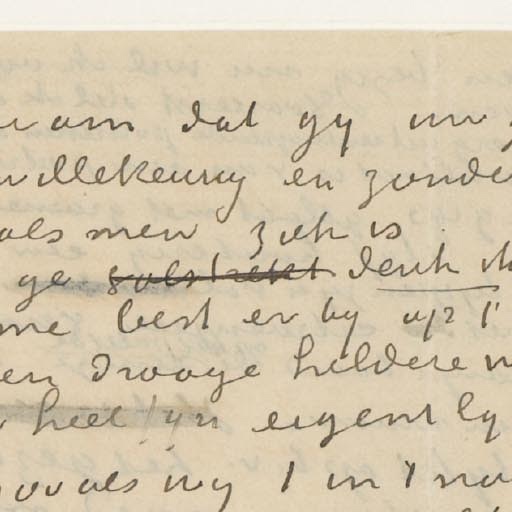 dat gy uw
willekeurig en zonde
als men ziek is.
ge denk ik
me best er by op 't
en drooge heldere
heel fyn eigentlyk
zooals wy 't in 't